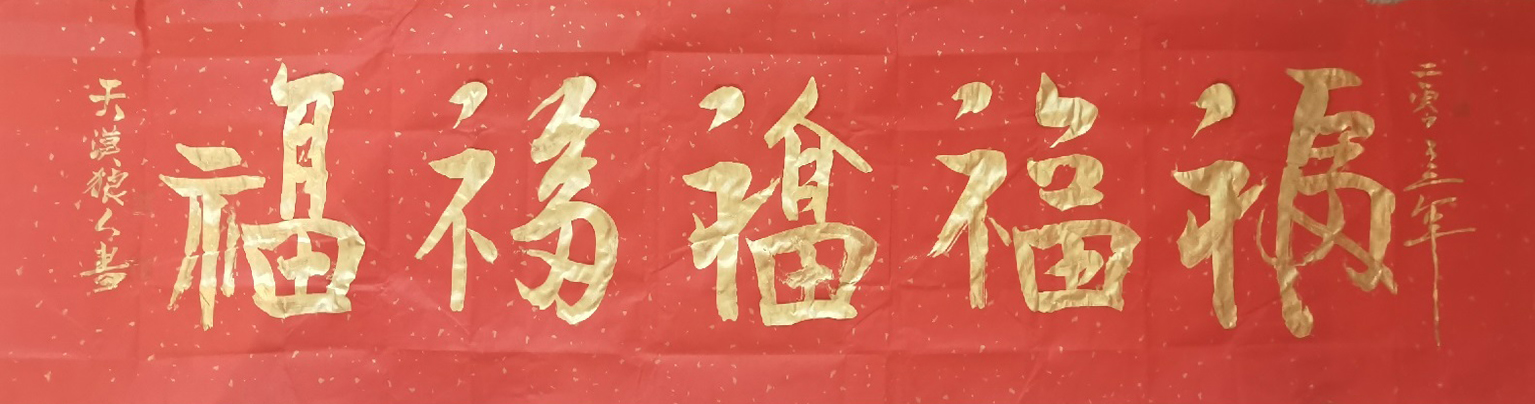 二零二三年
福福福福福
大漠狼人书